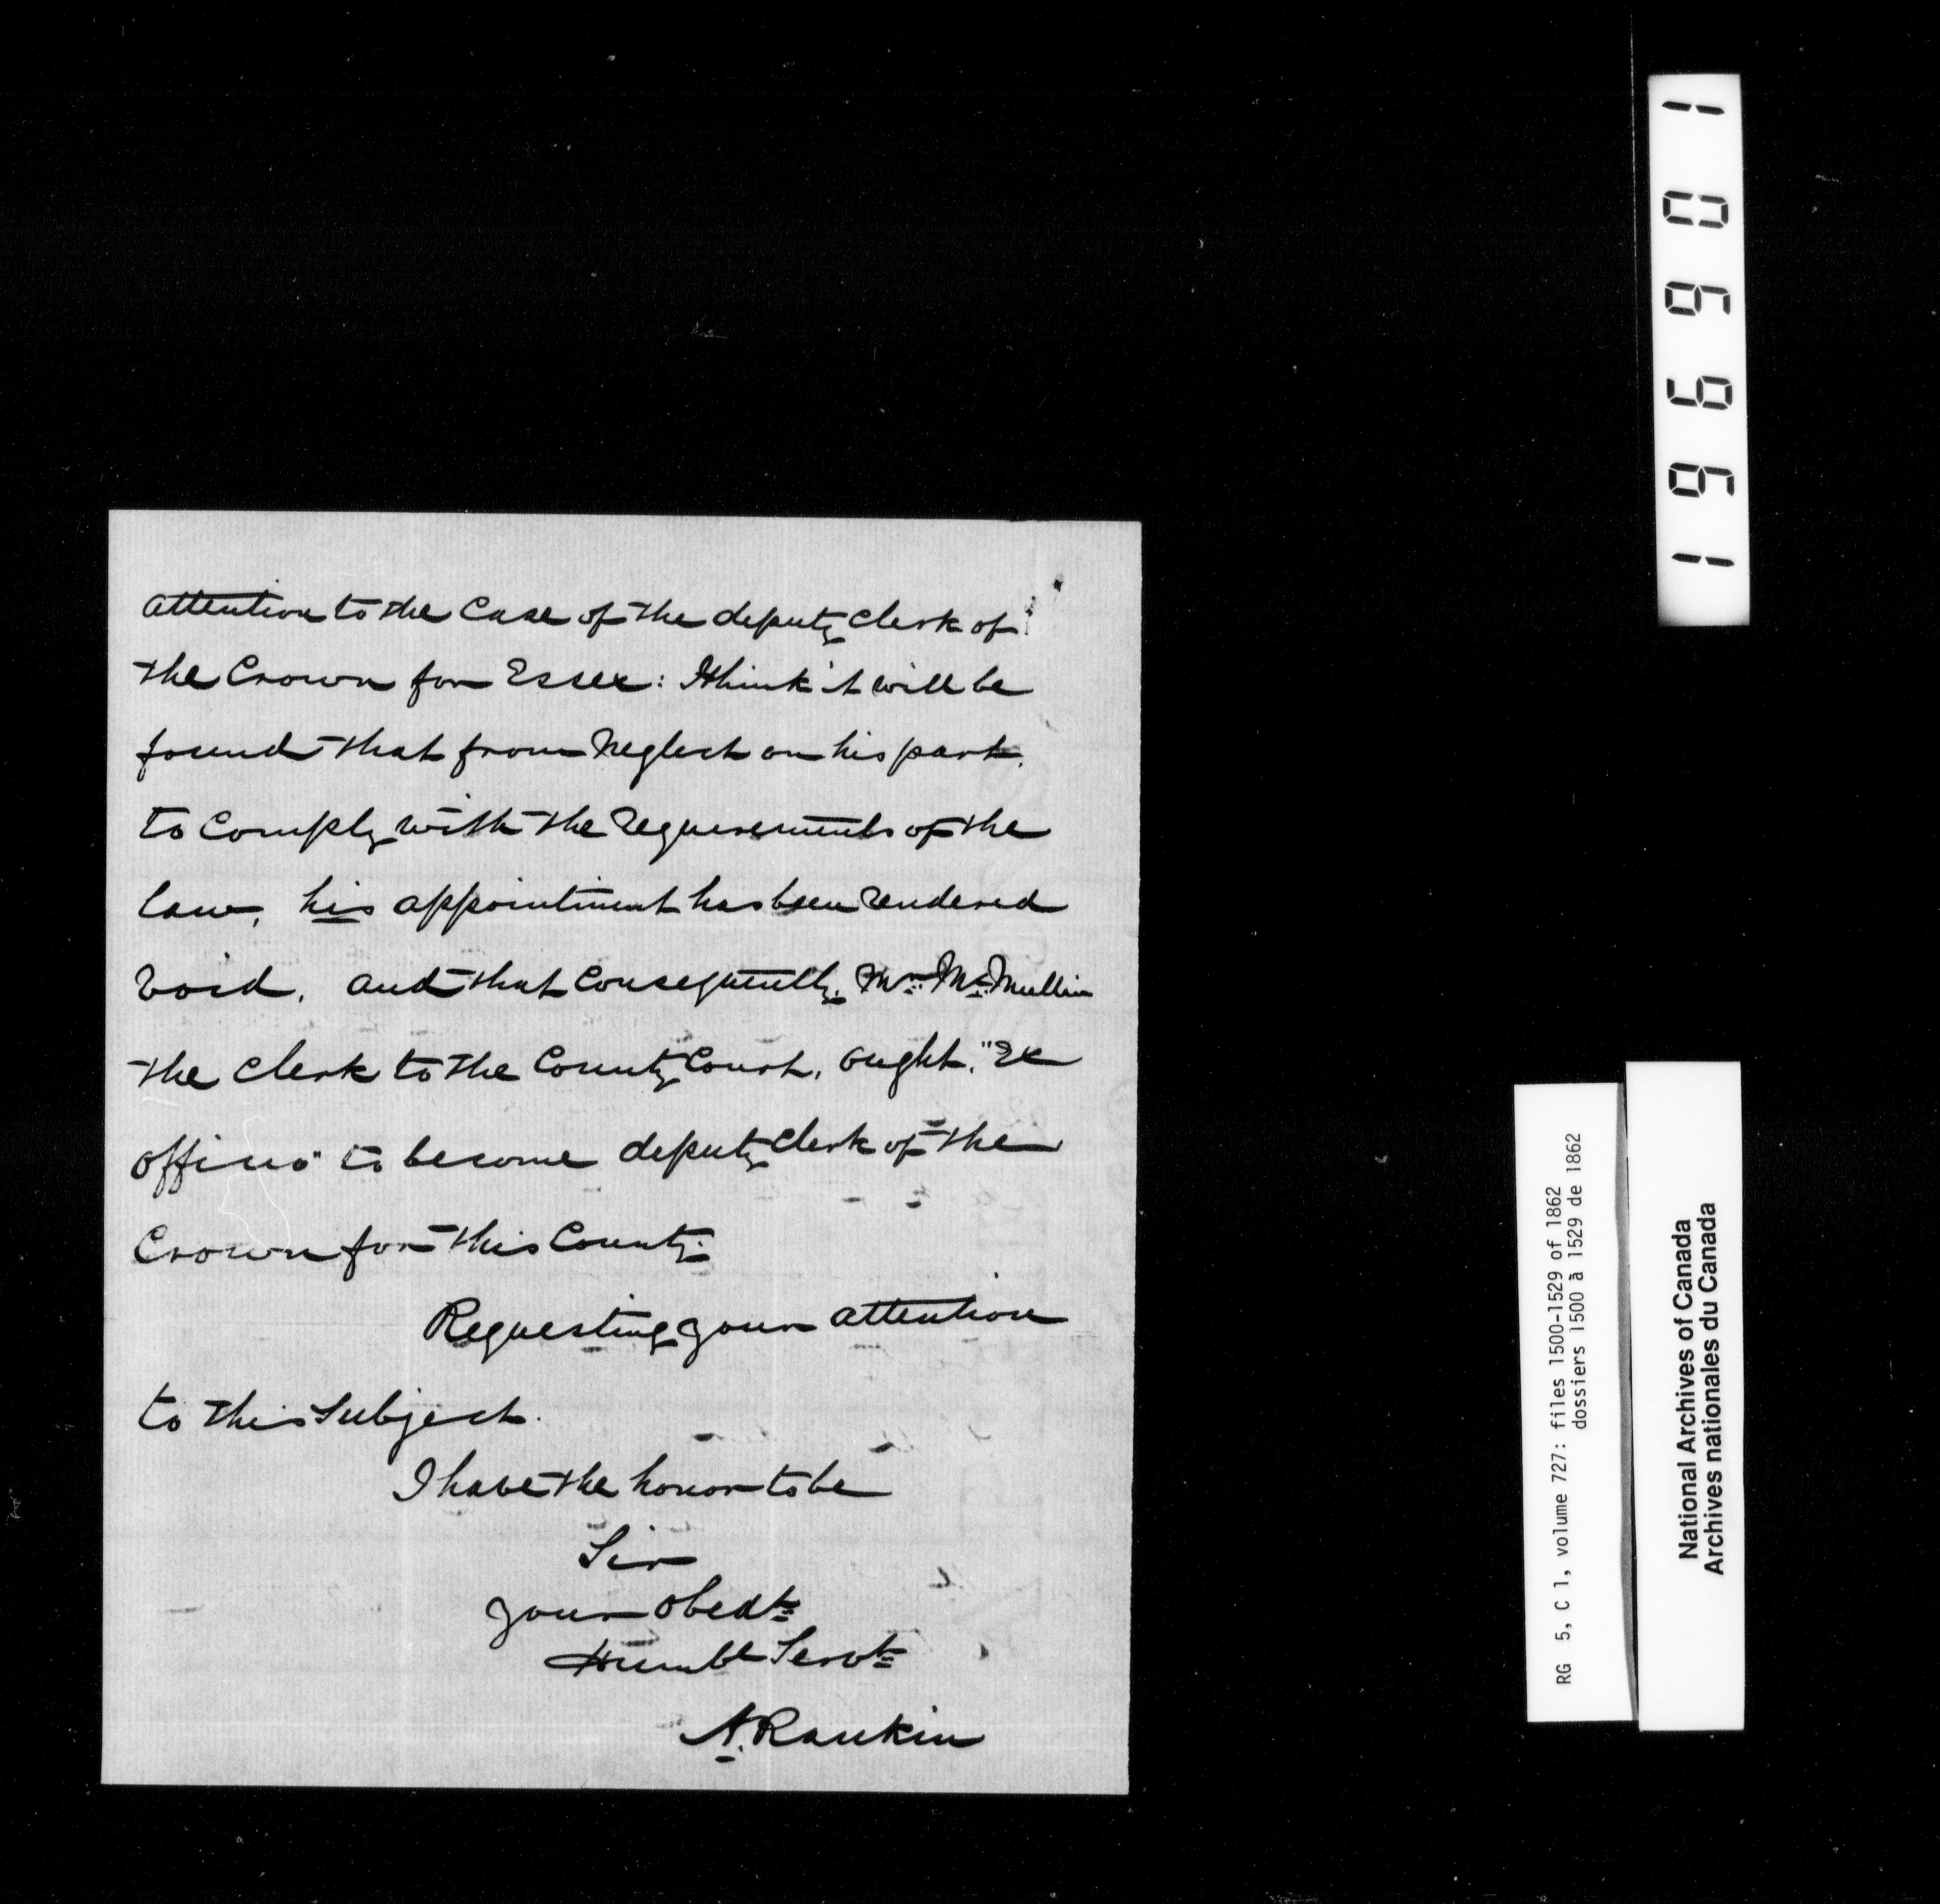 attention to the Case of the deputy Clerk of
the Crown for Essex: I think it will be
found that from Neglect on his part,
to Comply with the requirements of the
law, his appointment has been rendered
void, and that Consequently, Mr. McMullin
the Clerk to the County Court, ought, "Ex
officio" to become deputy Clerk of the
Crown for this County.
Requesting your attention
to this Subject.
I have the honor to be
Sir
your obedt.
Humbl Servt.
A. Rankin
196601
RG 5, C 1, volume 727: files 1500-1529 of 1862
dossiers 1500 à 1529 de 1862
National Archives of Canada
Archives nationales du Canada